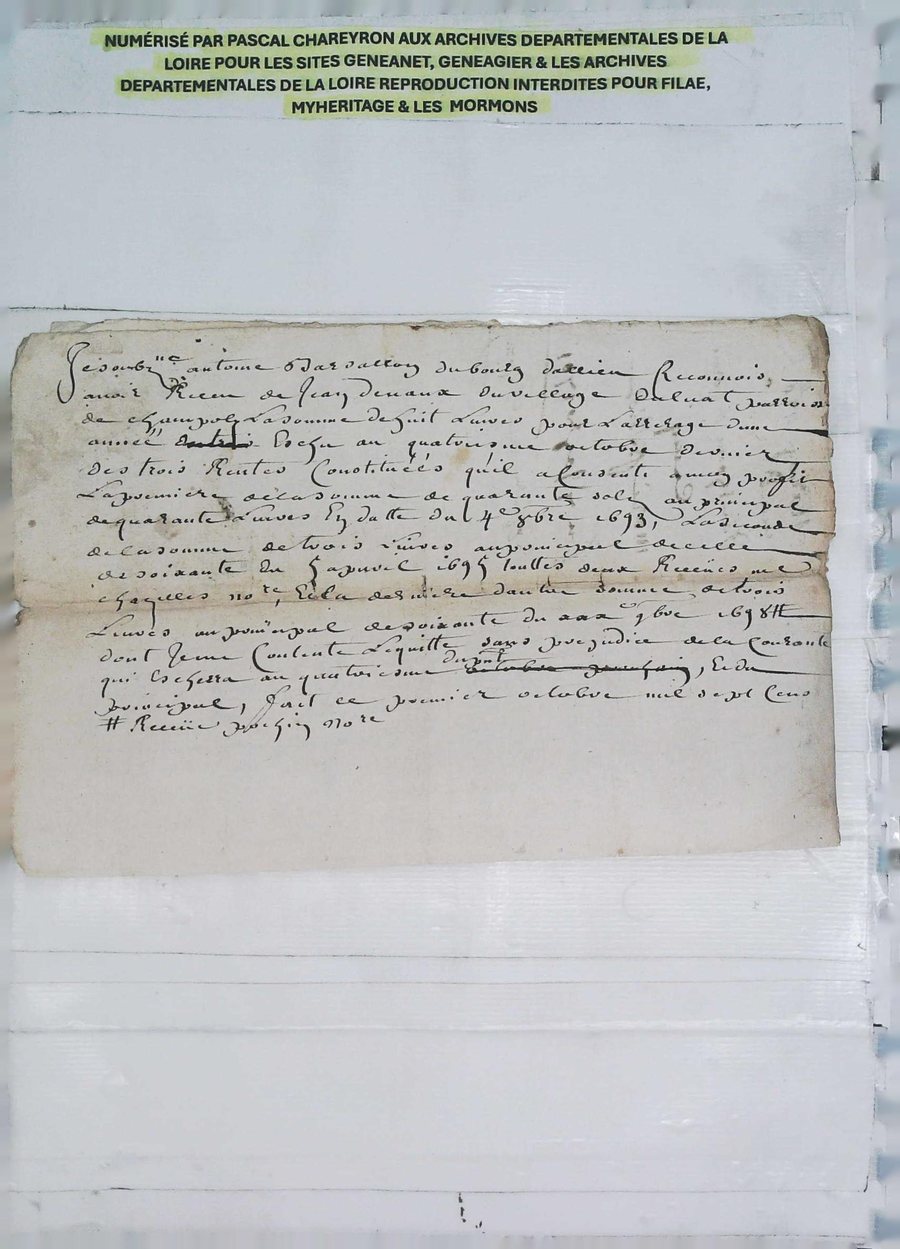 NUMÉRISÉ PAR PASCAL CHAREYRON AUX ARCHIVES DEPARTEMENTALES DE LA
LOIRE POUR LES SITES GENEANET, GENEAGIER & LES ARCHIVES
DEPARTEMENTALES DE LA LOIRE REPRODUCTION INTERDITES POUR FILAE,
MYHERITAGE & LES MORMONS
Je soubz.ne antoine du bourg Reconnois
avoir Receu de Jean devaux du village parroisse
de champoly La somme de huit Livres pour L'arrerage d'une
année Escheu au quatoriesme octobre dernier
des trois Rentes Constituéés qu'il a Consenti a mon profit
La premiere de la somme de quarante sols au principal
de quarante Livres En datte du 4e 8bre 1693, La seconde
de la somme de trois Livres au principal de celle
de soixante du 5 apvril 1695 touttes deux Receües me
nore, Et la derniere d'autre somme de trois
Livres au principal de soixante du 9bre 1698 #
dont Je me Contente L'en quitte sans prejudice de la Courante
qui Eschera au quatoriesme du pnt octobre prochain, Et du
principal, faict ce premier octobre mil sept Cens
# Receüe nore